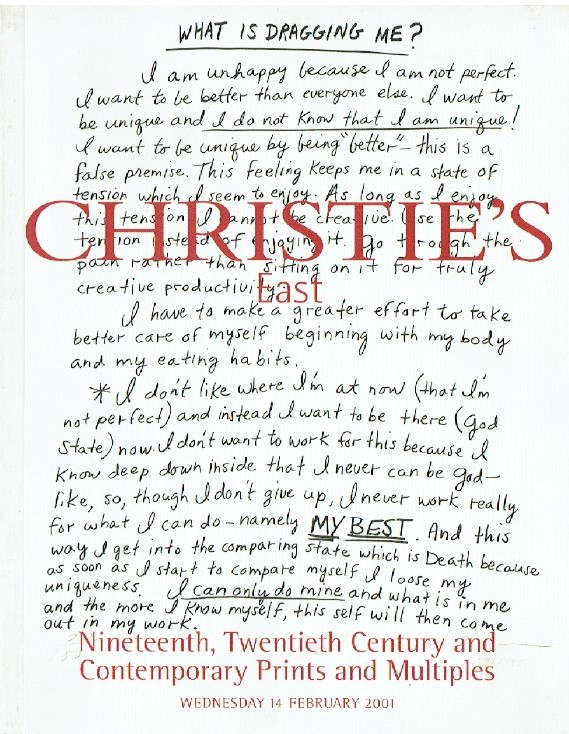 WHAT IS DRAGGING ME?
I am unhappy because I am not perfect.
I want to be better than everyone else. I want to
be unique and I do not know that I am unique!
I want to be unique by being "better" - this is a
false premise. This feeling keeps me in a state of
tension which I seem to enjoy. As long as I enjoy
this tension I cannot be creative. Use the
CHRISTIE'S
tension instead of enjoying it. Go through the
pain rather than sitting on it for truly
East
creative productivity.
I have to make a greater effort to take
better care of myself beginning with my body
and my eating habits.
* I don't like where I'm at now (that I'm
not perfect) and instead I want to be there (God
State) now. I don't want to work for this because I
know deep down inside that I never can be God-
like, so, though I don't give up, I never work really
for what I can do - namely MY BEST. And this
way I get into the comparing state which is Death because
as soon as I start to compare myself I loose my
uniqueness. I can only do mine and what is in me
and the more I know myself, this self will then come
out in my work.
Nineteenth, Twentieth Century and
Contemporary Prints and Multiples
WEDNESDAY 14 FEBRUARY 2001